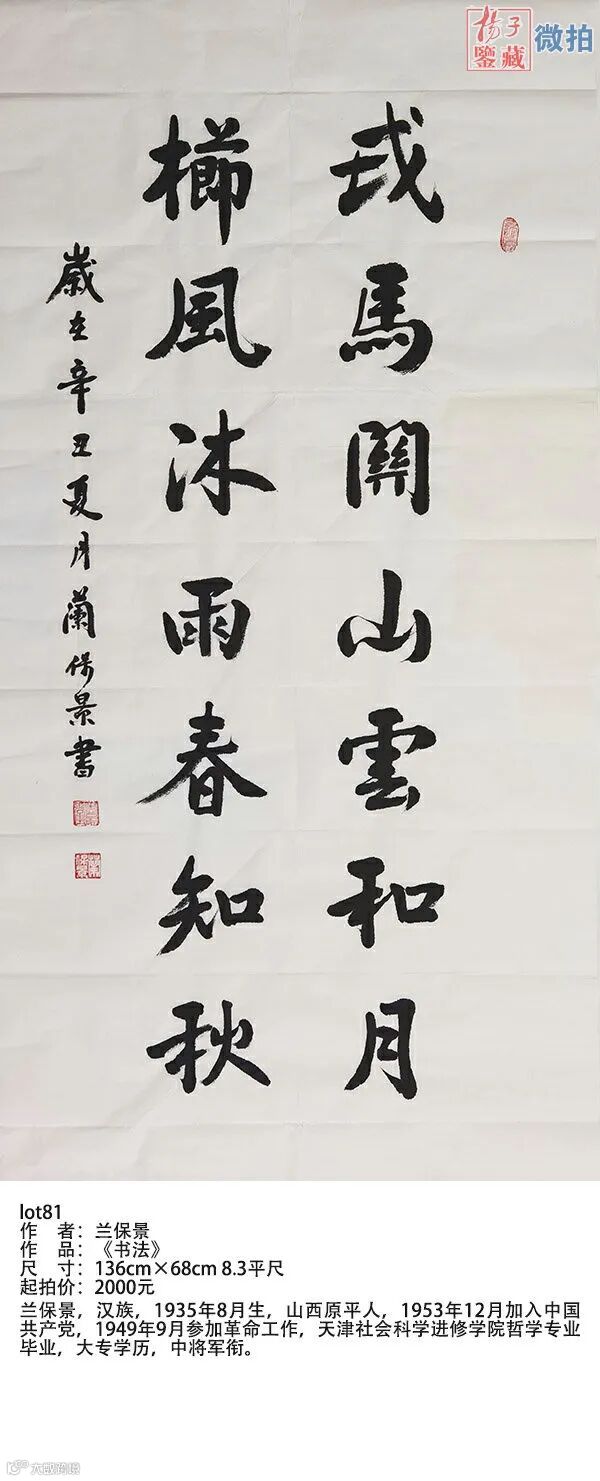 揚子
鑒藏
微拍
戎馬關山雲和月
櫛風沐雨春知秋
歲在辛丑夏月蘭保景書
lot81
作 者：兰保景
作 品：《书法》
尺 寸：136cm×68cm 8.3平尺
起拍价：2000元
兰保景，汉族，1935年8月生，山西原平人，1953年12月加入中国
共产党，1949年9月参加革命工作，天津社会科学进修学院哲学专业
毕业，大专学历，中将军衔。
大数跨境